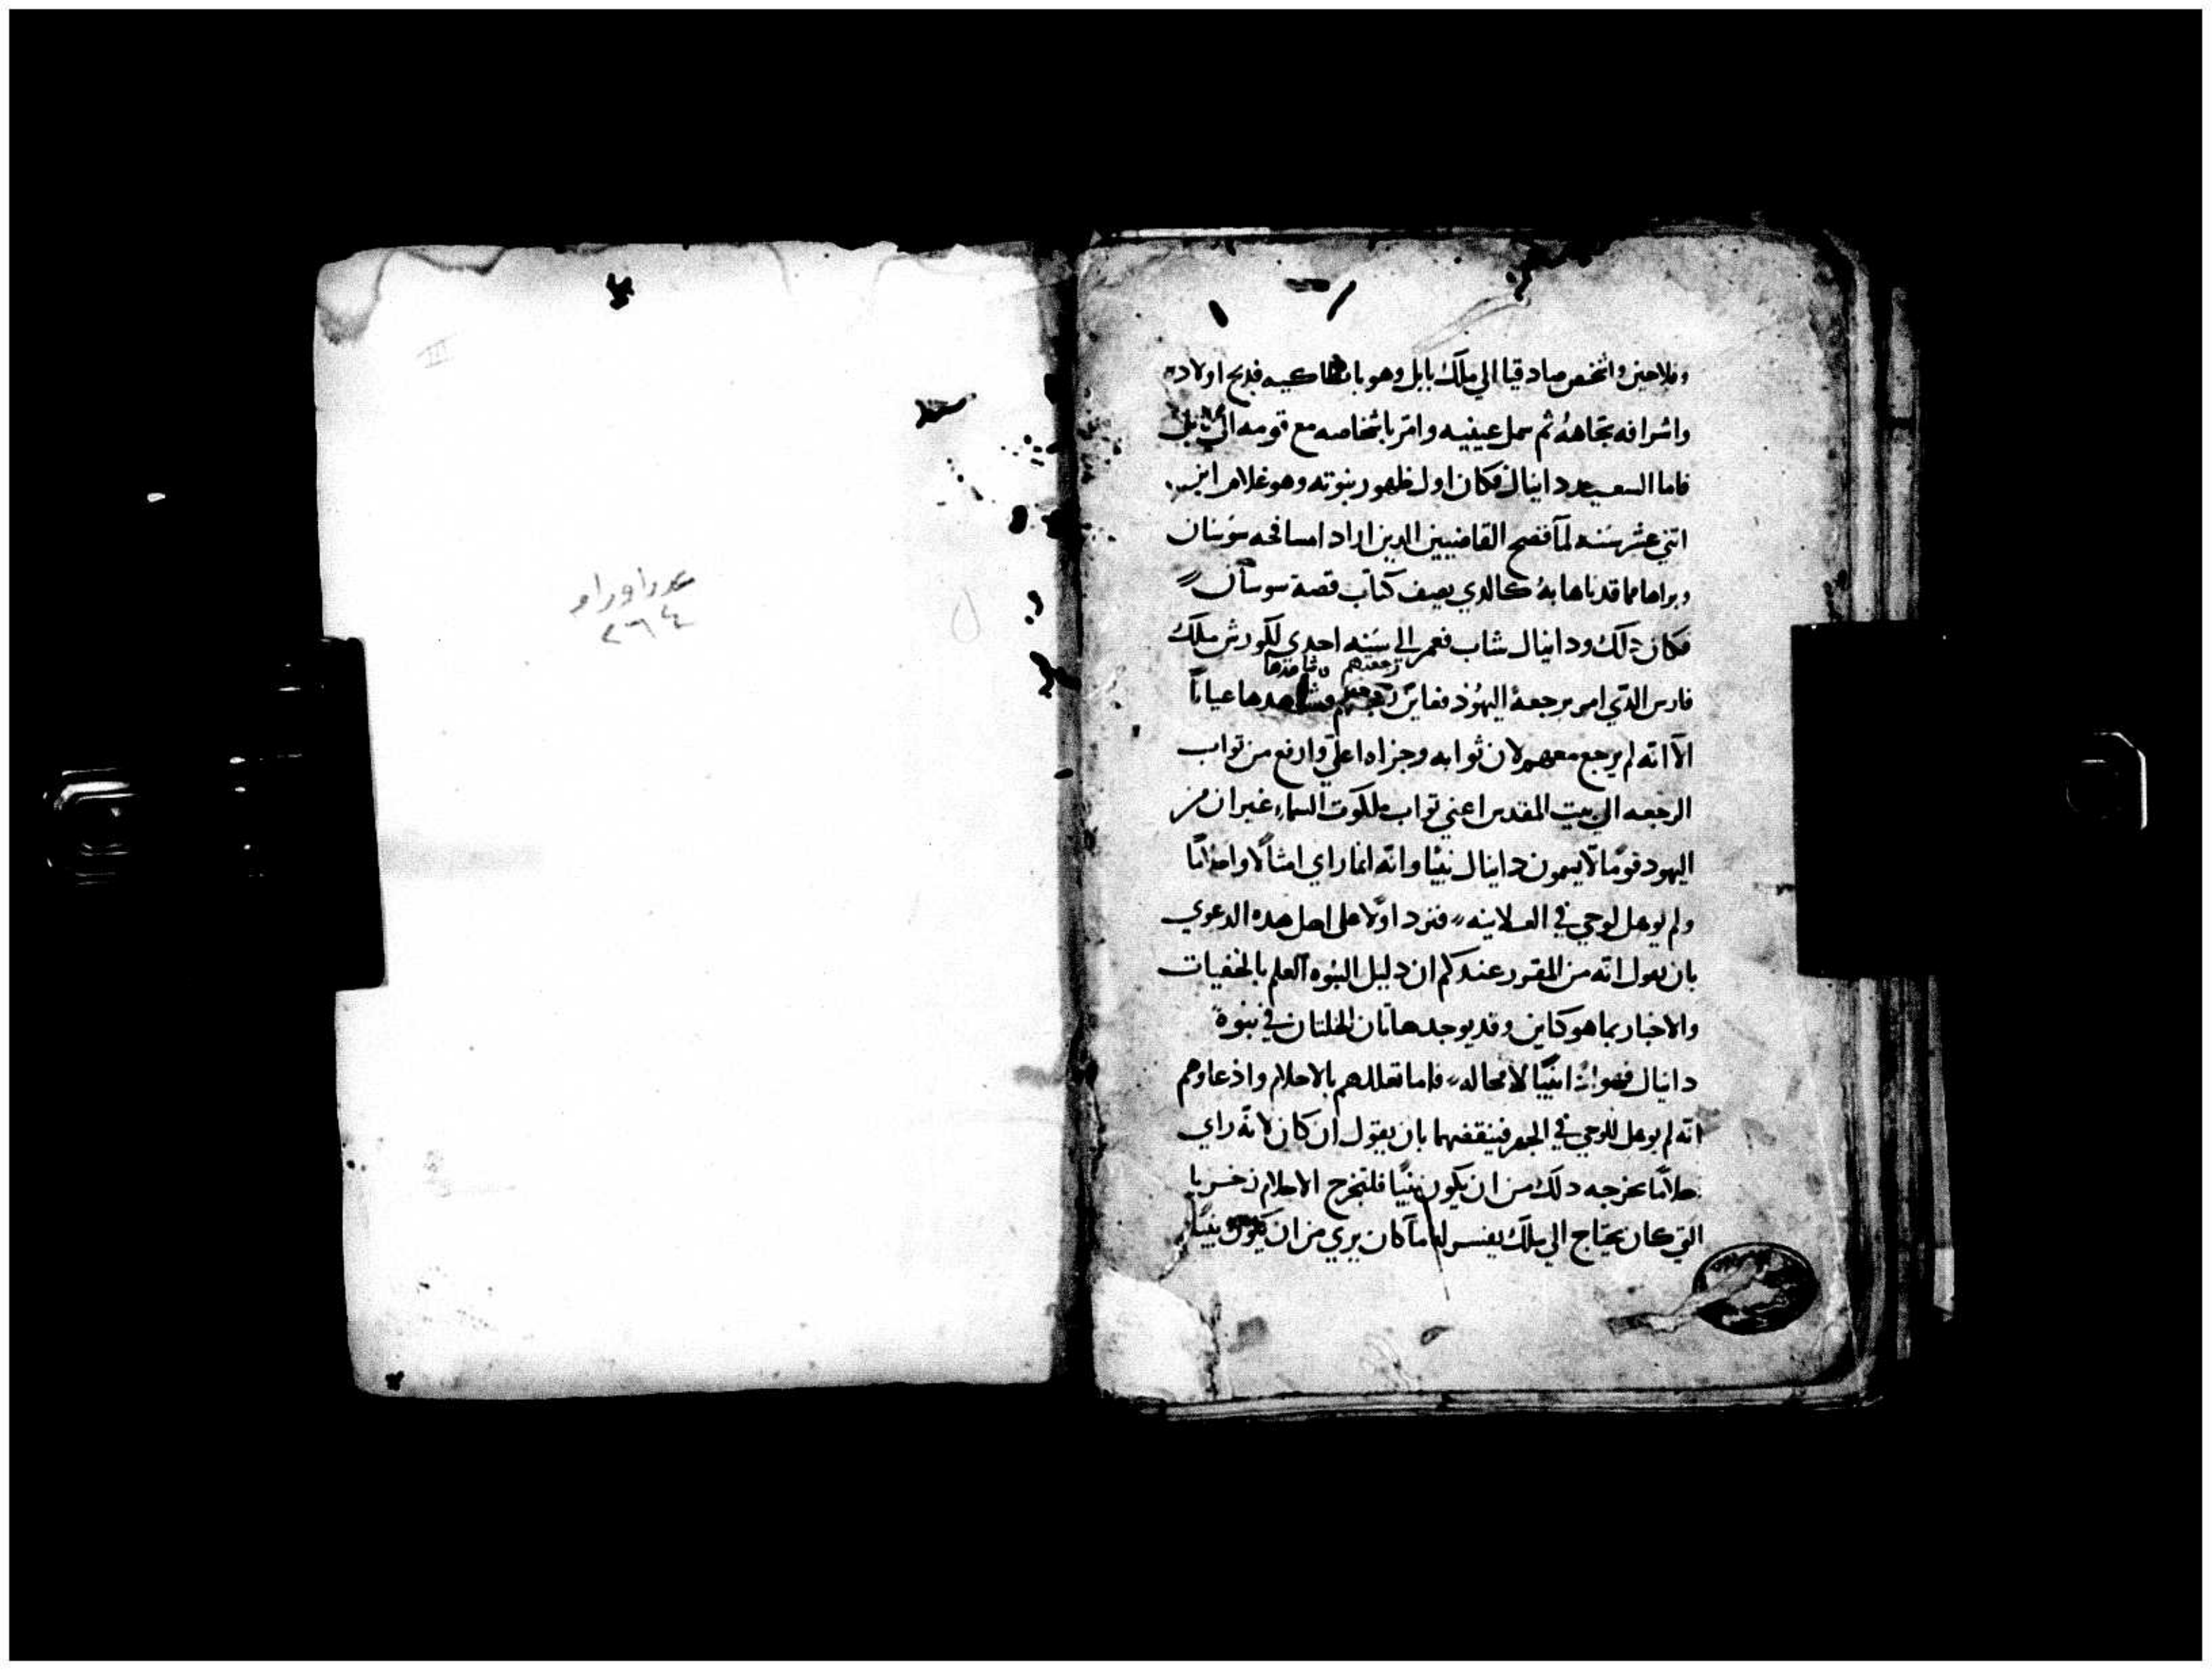 III
عدد اوراق
٢٦٤
وفلاحين واشخص صادقيا الي ملك بابل وهو بانطاكيه فدبح اولاده
واشرافه تجاهه ثم سمل عينيه وامر باشخاصه مع قومه الي بابل
فاما السعيد دانيال فكان اول ظهور نبوته وهو غلام ابن
اتني عشر سنه لما فضح القاضيين الدين ارادا مسافحه سوسان
وبراها مما قدفاها به كالدي يصف كتاب قصة سوسان
فكان دلك ودانيال شاب فعمر الي سنه احدي لكورش ملك
رجعتهم وشاهدها
فارس الدي امر برجعة اليهود فعاين رجعتهم وشاهدها عياناً
الا انه لم يرجع معهم لان ثوابه وجزاه اعلي وارفع من تواب
الرجعه الي بيت المقدس اعني تواب ملكوت السماء غير ان من
اليهود قومًا لا يسمون دانيال نبيًا وانه انما راي امثالا واحلامًا
ولم يوهل لوحي في العلانيه فنرد اولا علي اهل هده الدعوي
بان نقول انه من المقرر عندكم ان دليل النبوه العلم بالخفيات
والاخبار بما هو كاين وقد يوجد هاتان الخلتان في نبوة
دانيال فهو اذا نبيًا لا محاله فاما تعللهم بالاحلام وادعاوهم
انه لم يوهل للوحي في الجهر فينقضهما بان يقول ان كان لانه راي
حلامًا يخرجه دلك من ان يكون نبيًا فلتخرج الاحلام زخريا
التي كان يحتاج الي ملك يفسر له ما كان يري من ان يكون نبيًا